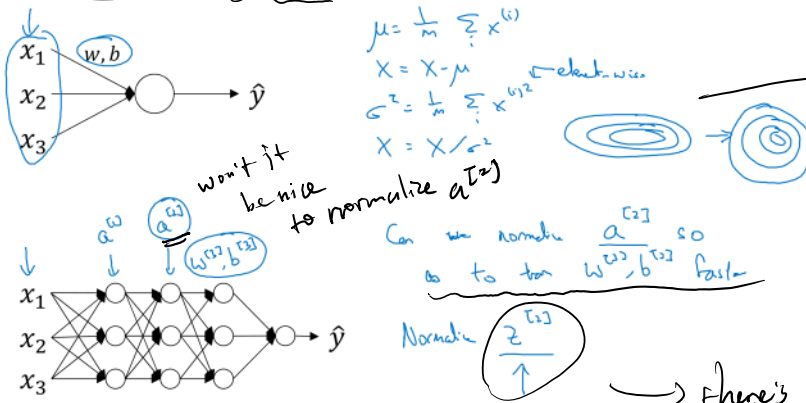 x₁
w, b
x₂
ŷ
x₃
μ = 1/m Σᵢ x⁽ⁱ⁾
X = X - μ
σ² = 1/m Σᵢ x⁽ⁱ⁾² ← element-wise
X = X/σ²
won't it
be nice
to normalize a^[2]
a^[1]
a^[2]
w^[3], b^[3]
x₁
x₂
ŷ
x₃
Can we normalize a^[2] so
as to train w^[3], b^[3] faster
Normalize z^[2]
there's